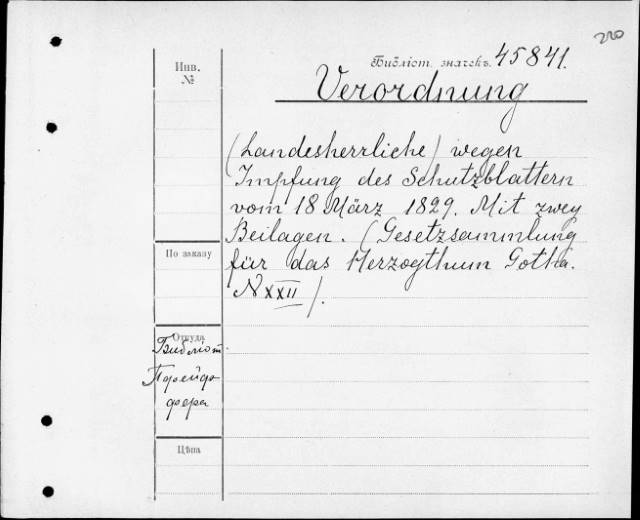 220
Библіот. значекъ. 45841.
Инв.
№
Verordnung
(Landesherrliche) wegen
Impfung des Schutzblattern
vom 18 März 1829. Mit zwey
Beilagen. (Gesetzsammlung
für das Herzogthum Gotha.
N XXII).
По заказу
Откуда
Библіот.
Пфейф-
фера
Цѣна